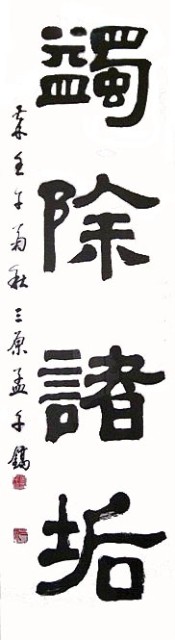 蠲除諸垢
壬午菊秋三原孟子鏑